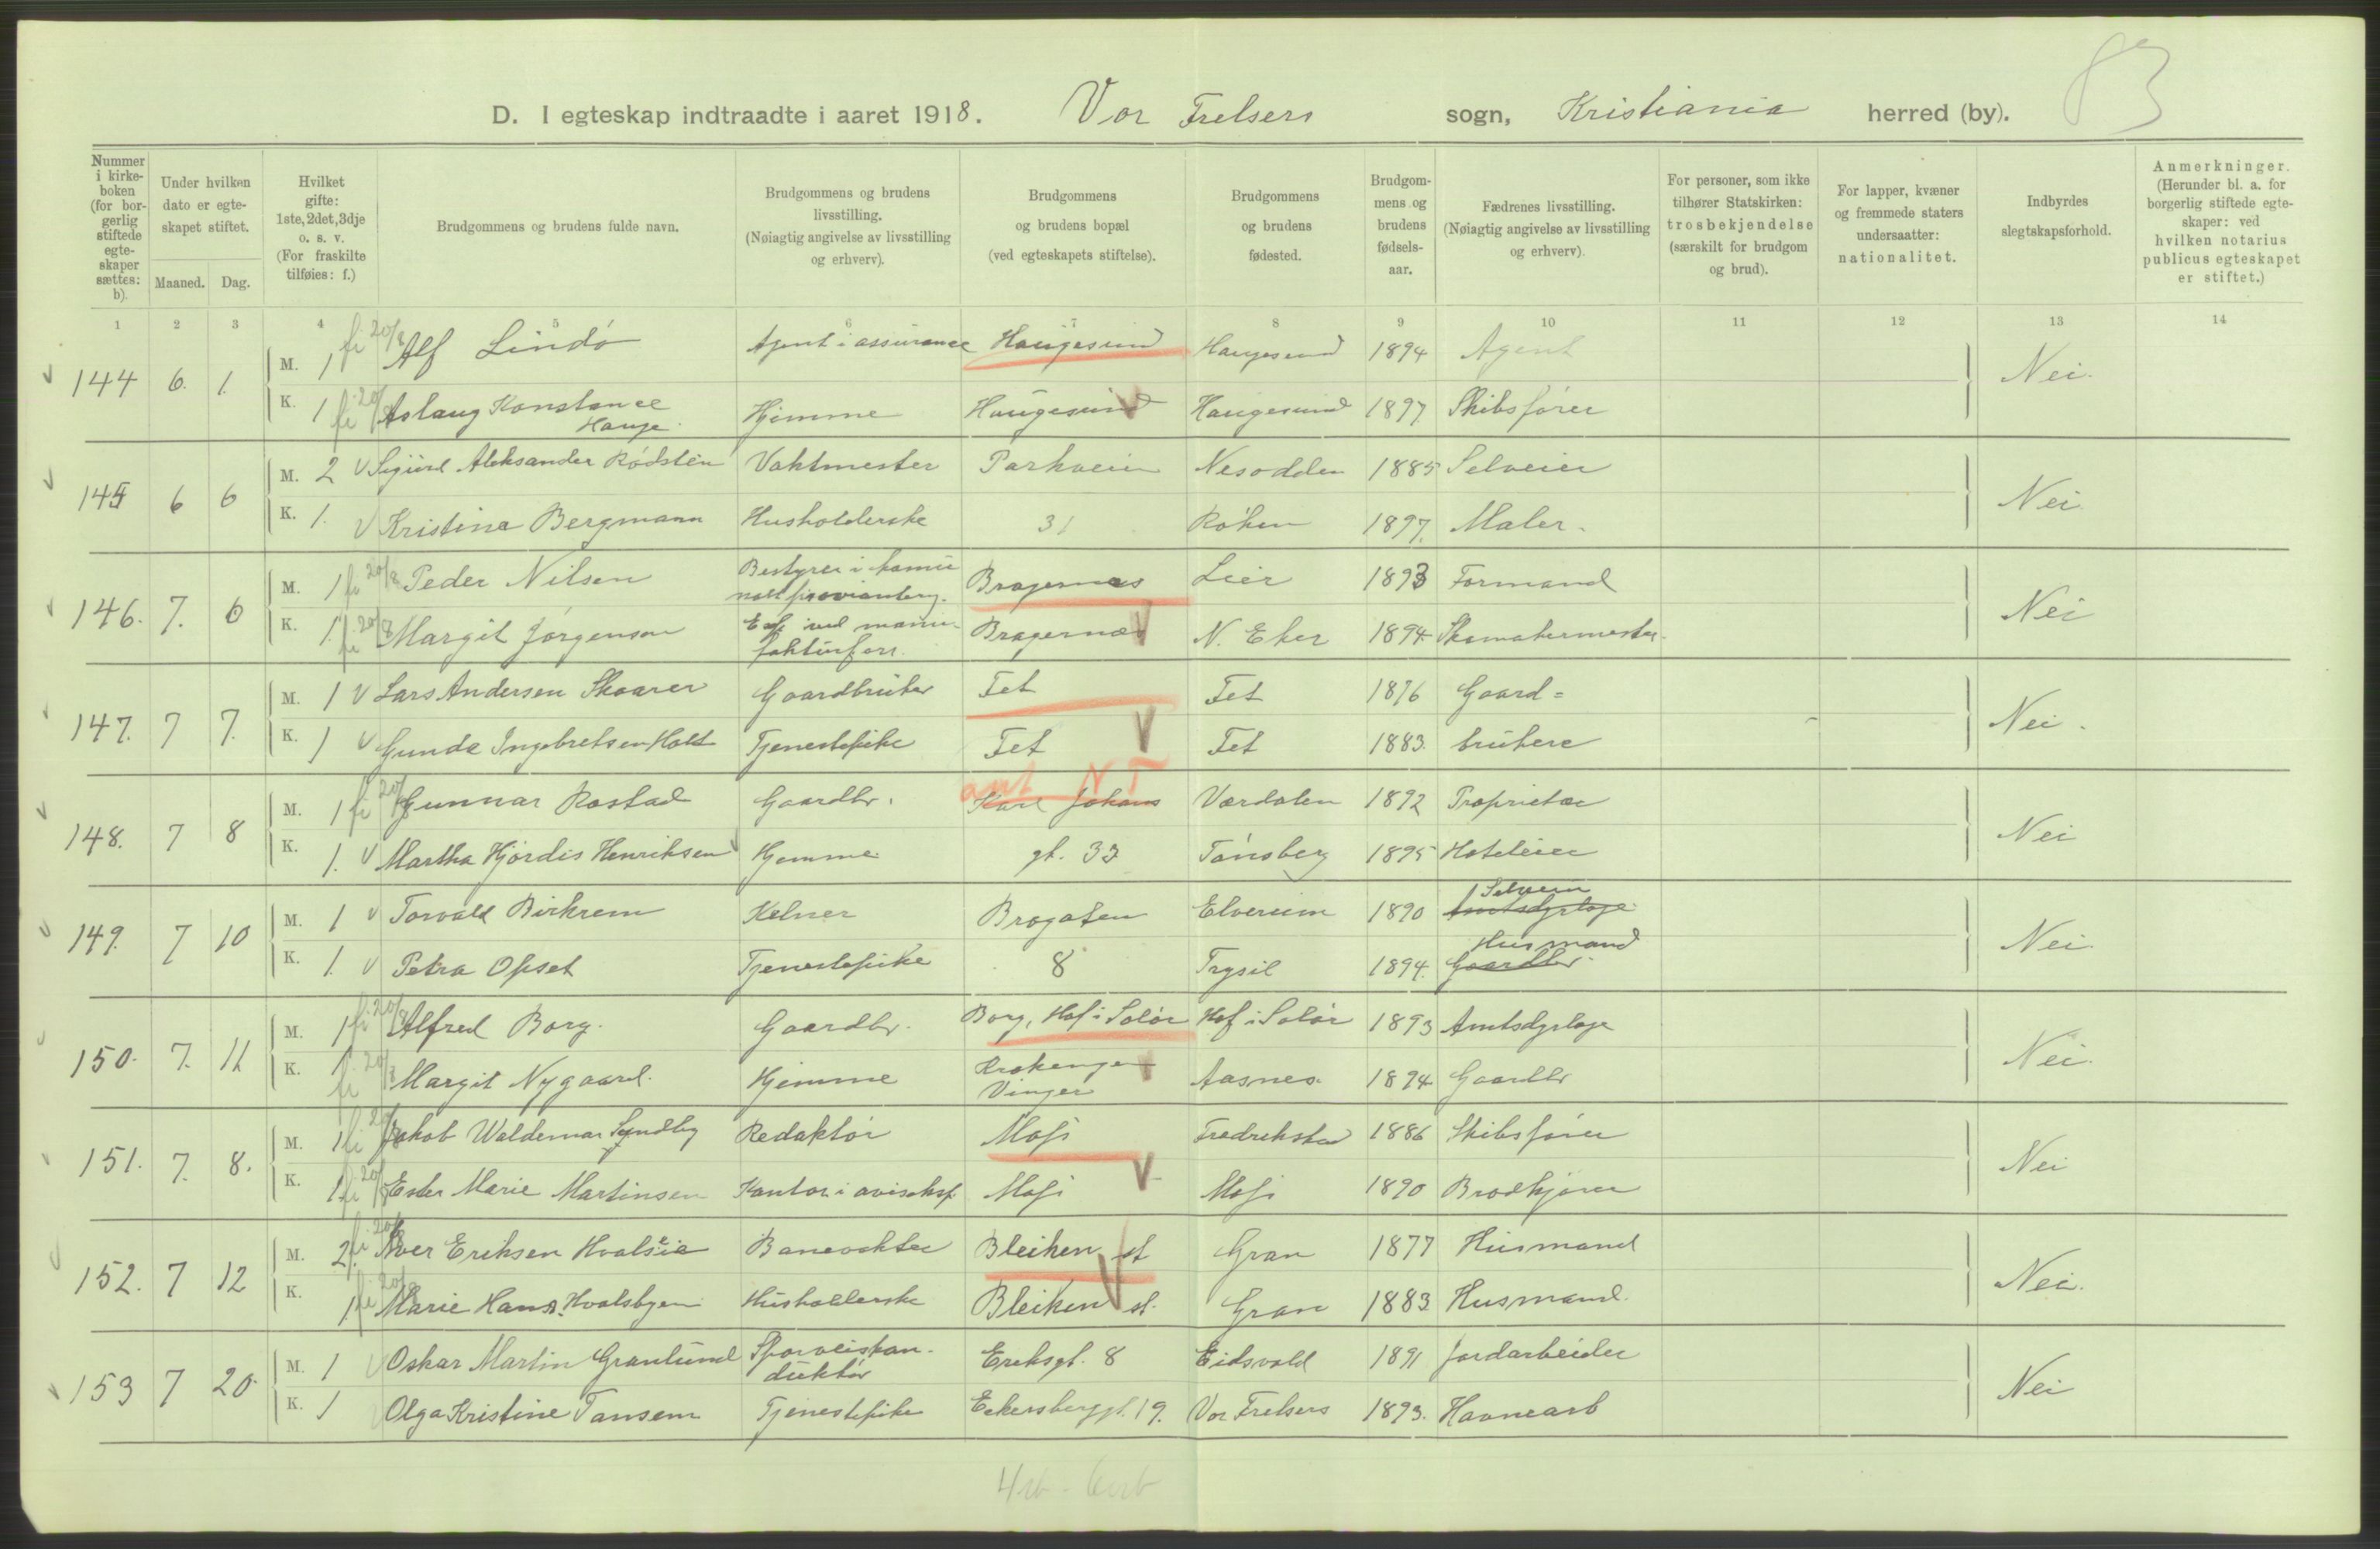 83
D. I egteskap indtraadte i aaret 1918. Vor Frelsers sogn, Kristiania herred (by).
Nummer i kirkeboken (for borgerlig stiftede egteskaper sættes: b).
Under hvilken dato er egteskapet stiftet.
Maaned. Dag.
Hvilket gifte: 1ste, 2det, 3dje o. s. v. (For fraskilte tilføies: f.)
Brudgommens og brudens fulde navn.
Brudgommens og brudens livsstilling. (Nøiagtig angivelse av livsstilling og erhverv).
Brudgommens og brudens bopæl (ved egteskapets stiftelse).
Brudgommens og brudens fødested.
Brudgommens og brudens fødselsaar.
Fædrenes livsstilling. (Nøiagtig angivelse av livsstilling og erhverv).
For personer, som ikke tilhører Statskirken: trosbekjendelse (særskilt for brudgom og brud).
For lapper, kvæner og fremmede staters undersaatter: nationalitet.
Indbyrdes slegtskapsforhold.
Anmerkninger. (Herunder bl. a. for borgerlig stiftede egteskaper: ved hvilken notarius publicus egteskapet er stiftet.)
1 2 3 4 5 6 7 8 9 10 11 12 13 14
144 6. 1. M. 1 fi 20/8 Alf Lindö Agent i assurance Haugesund Haugesund 1894 Agent Nei.
K. 1 fi 20/8 Aslaug Konstance Hauge. Hjemme Haugesund Haugesund 1897 Skibsfører
145 6 6 M. 2 Sigurd Aleksander Rödsten Vaktmester Parkveien Nesodden 1885 Selveier Nei.
K. 1. Kristine Bergmann Husholderske 31 Röken 1897. Maler.
146. 7. 6 M. 1 fi 20/8 Peder Nilsen Bestyrer i Bragernæs Lier 1893 Formand Nei
K. 1. fi 20/8 Margit Jørgensen Bragernæs N. Eker 1894 Skomakermester.
147. 7 7. M. 1 Lars Andersen Skaarer Gaardbruker Fet Fet 1876 Gaard= Nei.
K. 1 Gunda Ingebretsen Holt Tjenestepike Fet Fet 1883. brukere
amt N T
148. 7 8 M. 1 fi 20/8 Gunnar Rostad Gaardbr. Karl Johans Værdalen 1892 Proprietær Nei
K. 1. Martha Hjørdis Henriksen Hjemme gt. 33 Tønsberg 1895 Hoteleier
149. 7 10 M. 1 Torvald Birkrem Kelner Brogaten Elverum 1890 Selveier Amtsdyrlæge Nei.
K. 1. Petra Opset Tjenestepike 8 Trysil 1894. Husmand Gaardbr.
150. 7. 11 M. 1 fi 20/8 Alfred Borg. Gaardbr. Borg, Hof i Solør Hof i Solør 1893 Amtsdyrlæge Nei.
K. 1 fi 20/8 Margit Nygaard. Hjemme Vinger Aasnes. 1894 Gaardbr
151. 7. 8. M. 1 fi 20/8 Jakob Waldemar Syndby Redaktør Moss Fredrikstad 1886 Skibsfører Nei
K. 1 fi 20/8 Ester Marie Martinsen Kontor i aviseksp. Moss Moss 1890 Brødkjører
152. 7 12 M. 2. fi 20/8 Iver Eriksen Hvalseie Banevokter Bleiken st Gran 1877 Husmand Nei.
K. 1 fi 20/8 Marie Hansd. Hvalsbyen Husholderske Bleiken st. Gran 1883 Husmand.
153 7 20. M. 1 Oskar Martin Granlund Sporveiskonduktør Eriksgt. 8 Eidsvold 1891 Jordarbeider Nei
K. 1 Olga Kristine Tansem Tjenestepike Eckersberggt. 19. Vor Frelsers 1893. Havnearb